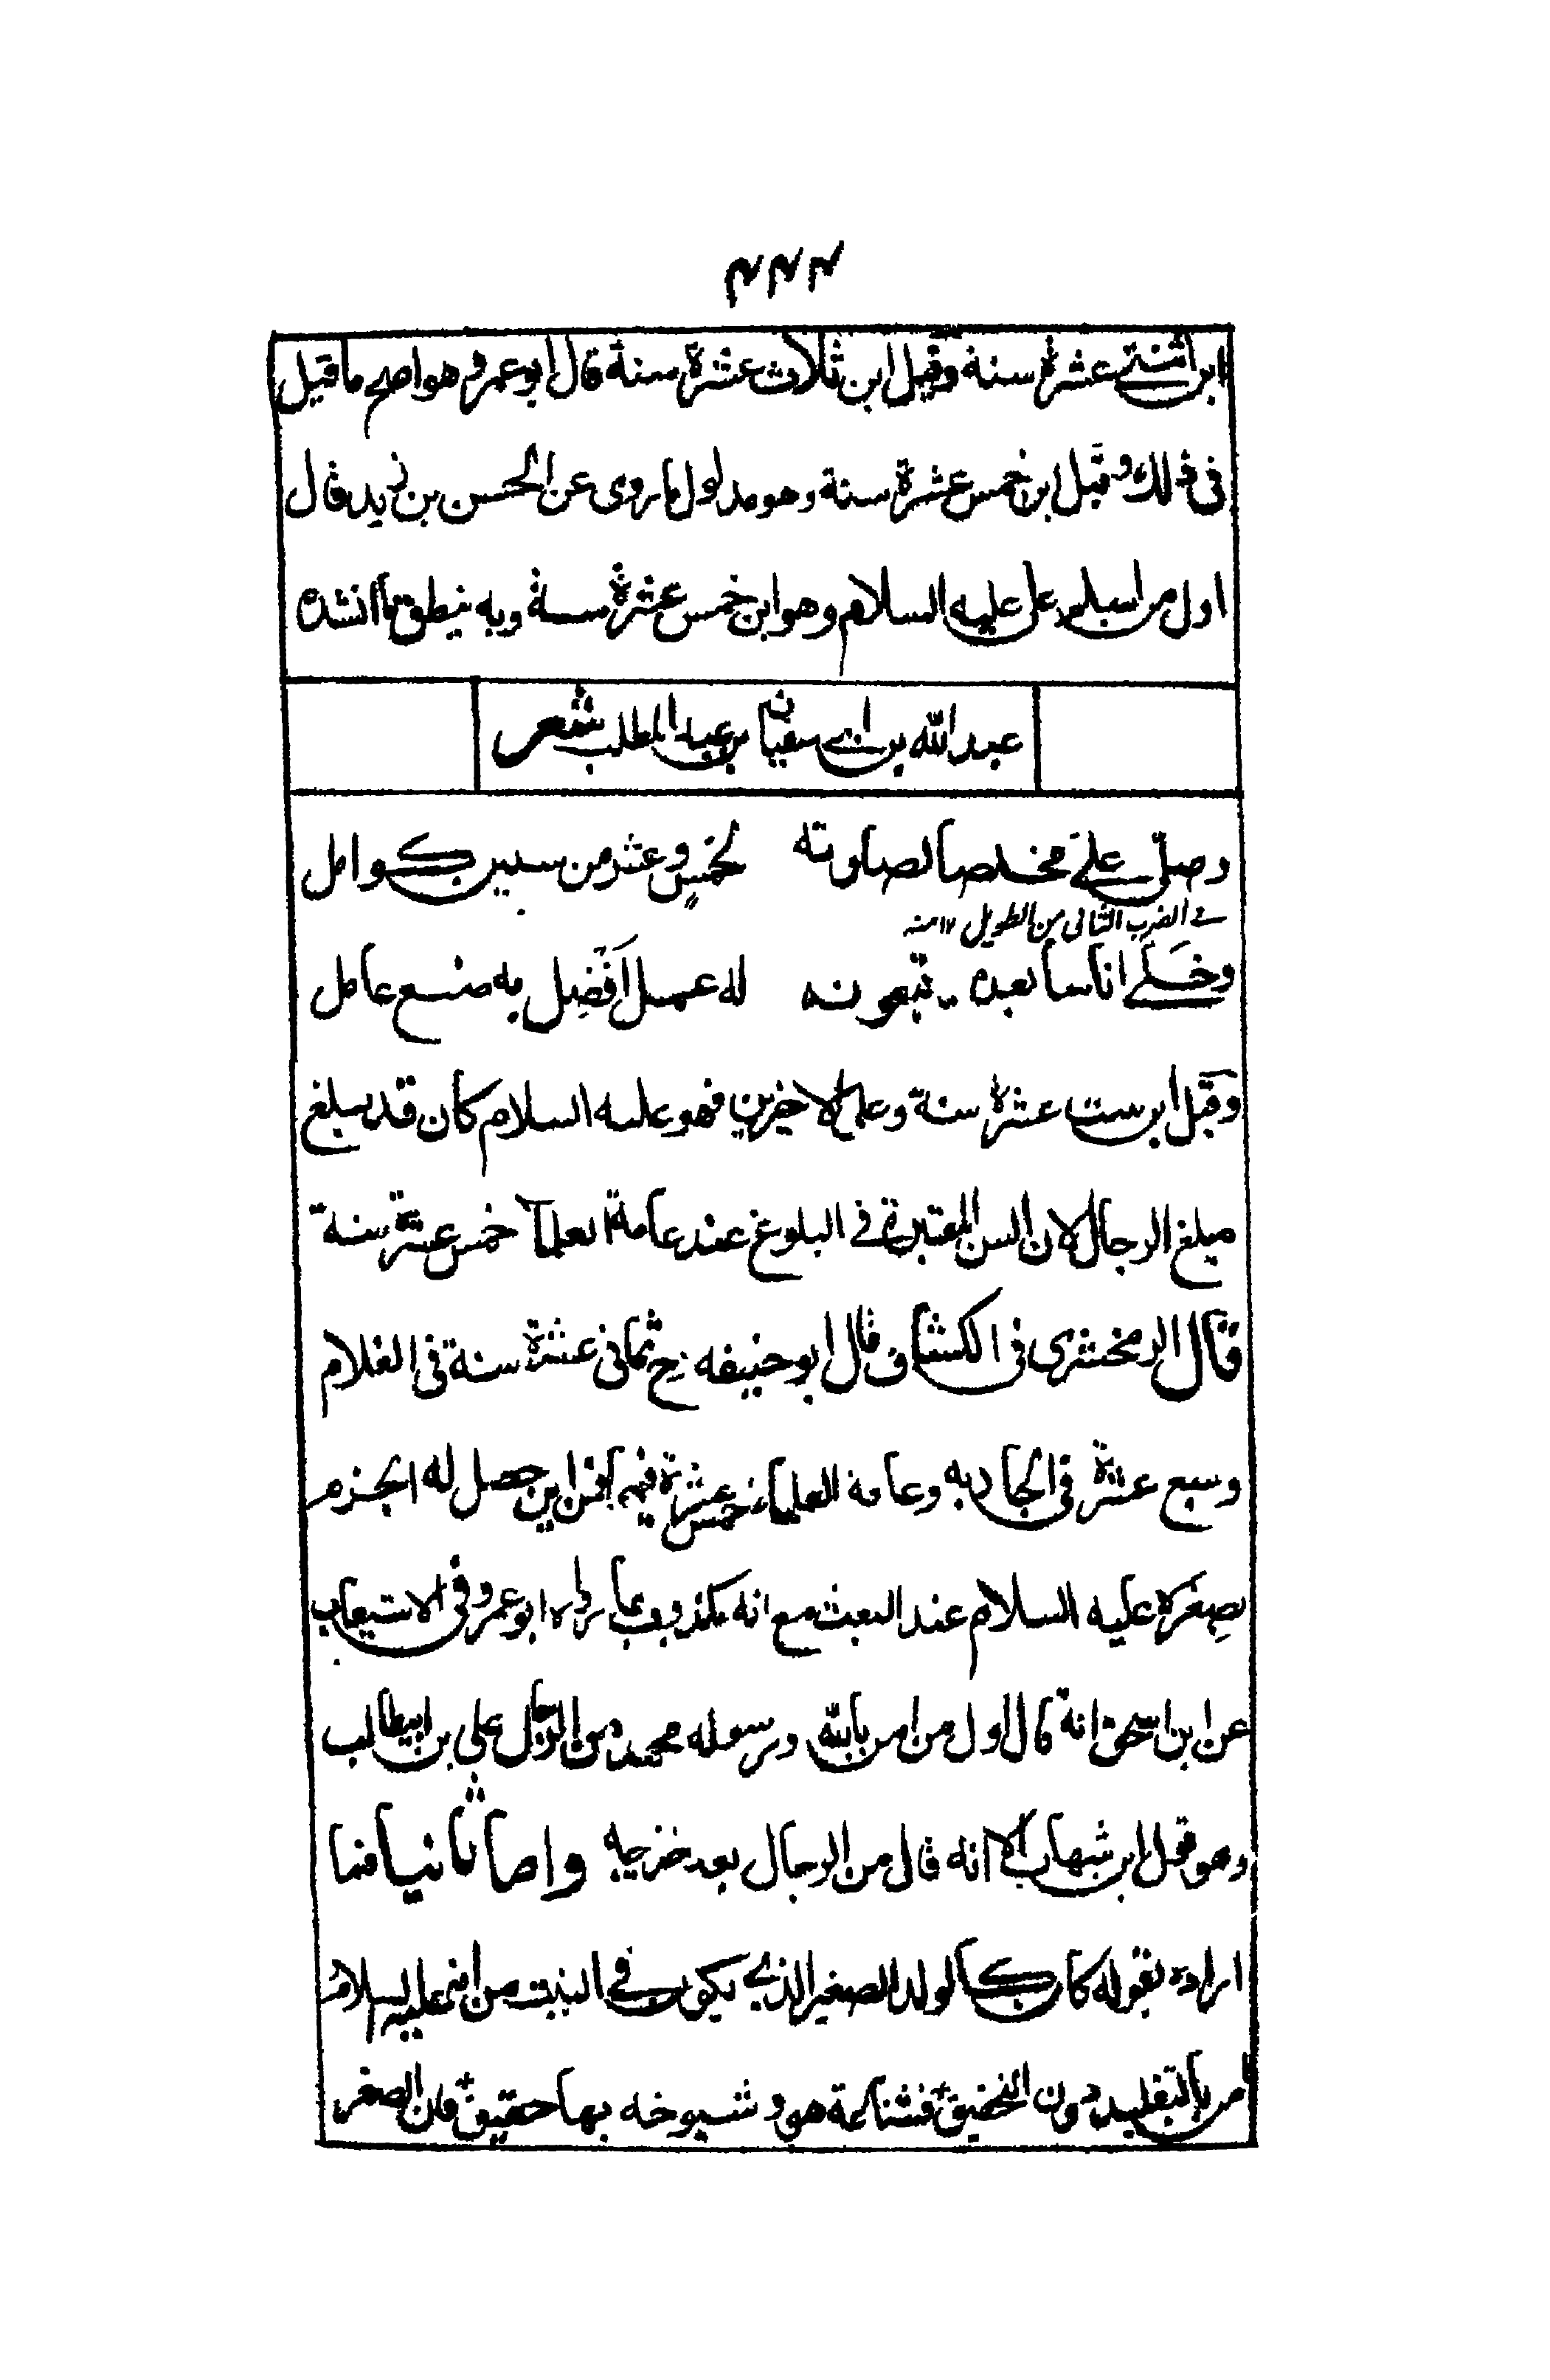 ٣٣٣
ابن اثنتى عشرة سنة وقيل ابن ثلاث عشرة سنة قال ابو عمرو هو اصح ما قيل
فى ذلك وقيل ابن خمس عشرة سنة وهو مدلول ما روى عن الحسن بن زيد قال
اول من اسلم على عليه السلام وهو ابن خمس عشرة سنة وبه ينطق ما انشده
عبد الله بن ابى سفيان بن عبد المطلب شعر
وصلى على مخلصا لصلوته لخمس وعشر من سنين كوامل
فى الضرب الثانى من الطويل ١٢ منه
وخلى اناسا بعده يتبعونه له عمل افضل به صنع عامل
وقيل ابن ست عشرة سنة وعلى الاخيرين فهو عليه السلام كان قد بلغ
مبلغ الرجال لان السن المعتبرة فى البلوغ عند عامة العلماء خمس عشرة سنة
قال الزمخشرى فى الكشاف قال ابو حنيفه رح ثمانى عشرة سنة فى الغلام
وسبع عشرة فى الجاريه وعامة العلماء خمس عشرة فيهما فمن اين حصل له الجزم
بصغره عليه السلام عند البعث مع انه مكذوب بما رواه ابو عمرو فى الاستيعاب
عن ابن اسحق انه قال اول من امن بالله ورسوله محمد من الرجال على بن ابيطالب
وهو قول ابن شهاب الا انه قال من الرجال بعد خديجه واما ثانيا فما
اراده بقوله كان كالولد الصغير الذى يكون فى البيت من انه عليه السلام
امن بالتقليد دون التحقيق فشناعة هو وشيوخه بها حقيق فان الصغر